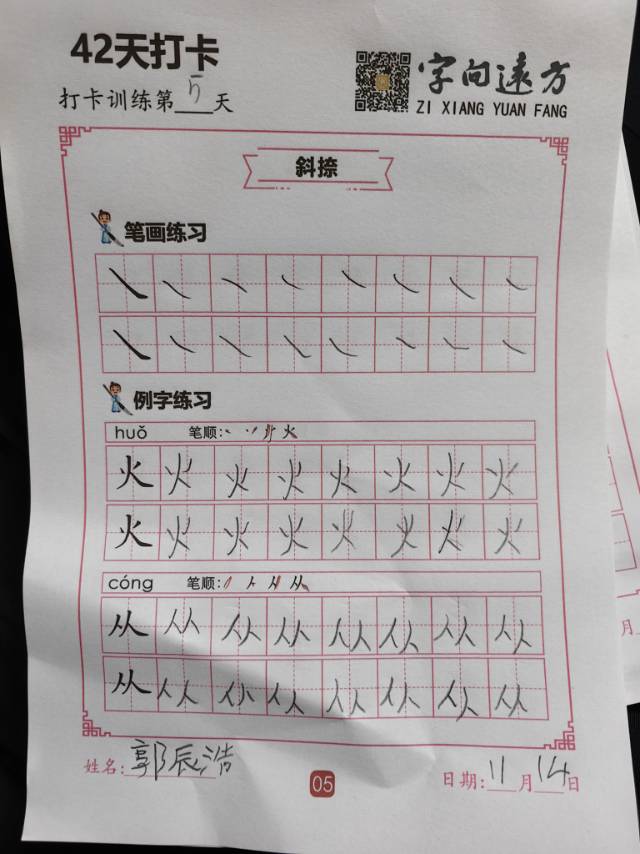 42天打卡
字向远方
打卡训练第5天
ZI XIANG YUAN FANG
斜捺
笔画练习
㇏ ㇏ ㇏ ㇏ ㇏ ㇏ ㇏ ㇏
㇏ ㇏ ㇏ ㇏ ㇏ ㇏ ㇏ ㇏
例字练习
huǒ 笔顺: 火
火 火 火 火 火 火 火 火
火 火 火 火 火 火 火 火
cóng 笔顺: 从
从 从 从 从 从 从 从 从
从 从 从 从 从 从 从 从
姓名: 郭辰浩
05
日期: 11月14日
月